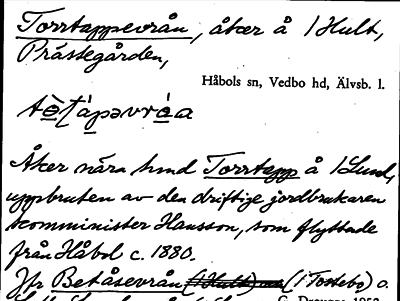 Torrtappevrån, åker å 1 Hult,
Prästegården,
Håbols sn, Vedbo hd, Älvsb. l.
Åker nära hmd Torrtapp å 1 Lund,
uppbruten av den driftige jordbrukaren
komminister Hansson, som flyttade
från Håbol c. 1880.
Jfr Betåsevrån (1 Hult) (1 Tostebo) o.